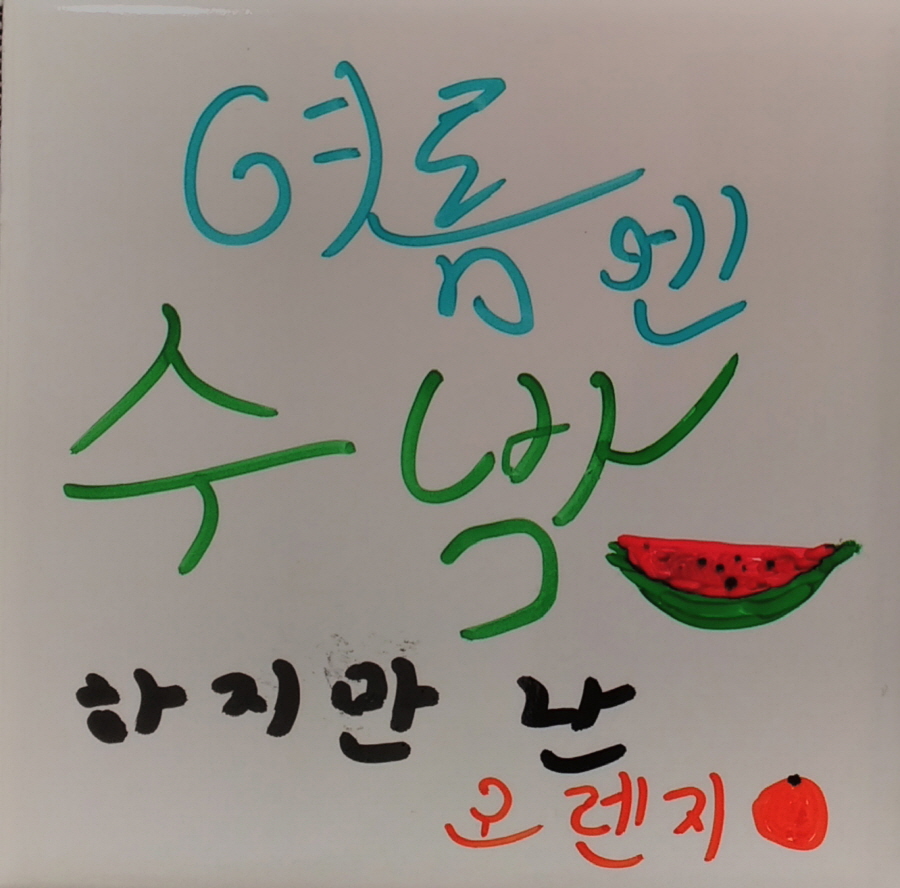 여름엔
수박
하지만 난
오렌지